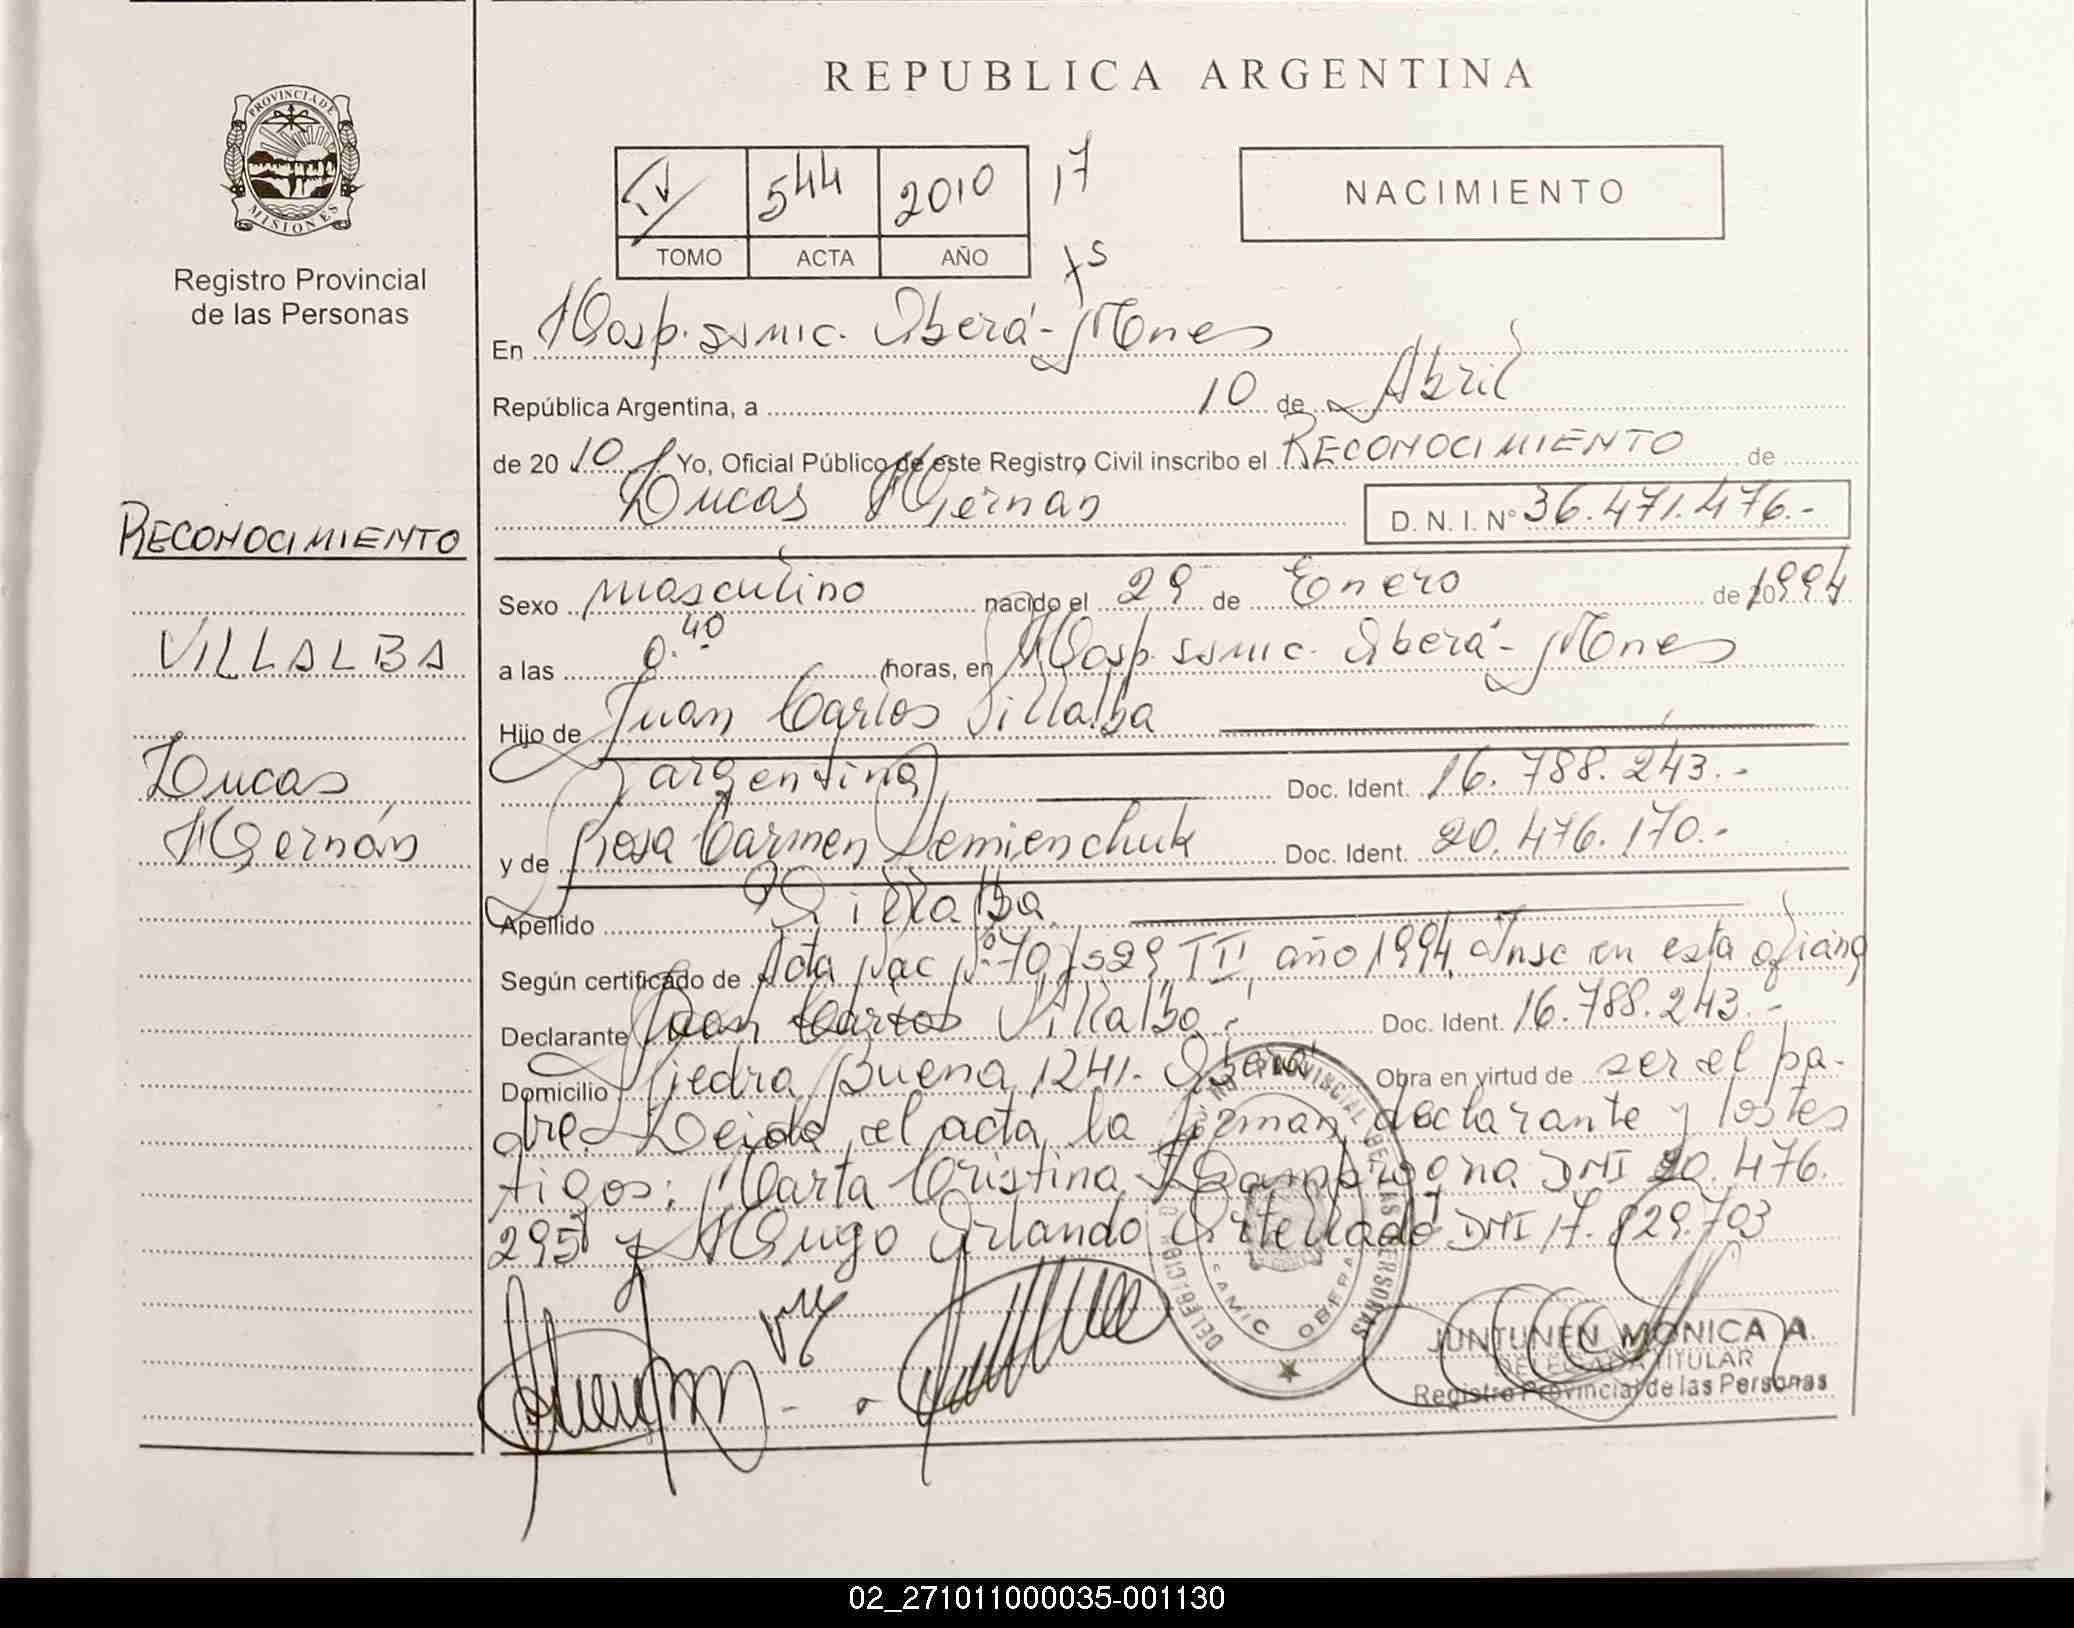 REPUBLICA ARGENTINA
PROVINCIA DE
MISIONES
Registro Provincial
de las Personas
IV 544 2010 17
TOMO ACTA AÑO
NACIMIENTO
En Hosp. SSMIC. Oberá - Mnes
República Argentina, a 10 de Abril
de 20 10 Yo, Oficial Público de este Registro Civil inscribo el RECONOCIMIENTO de
Lucas Hernán D. N. I. N° 36.471.476.-
RECONOCIMIENTO
Sexo masculino nacido el 29 de Enero de 1994
VILLALBA
a las 0.40 horas, en Hosp. SSMIC. Oberá - Mnes
Hijo de Juan Carlos Villalba
Lucas
Hernán
argentina Doc. Ident. 16.788.243.-
y de Rosa Carmen Demienchuk Doc. Ident. 20.476.170.-
Apellido Villalba
Según certificado de Acta Nac N° 70 fs 29 T II año 1994 Insc en esta oficina
Declarante Juan Carlos Villalba Doc. Ident. 16.788.243.-
Domicilio Piedra Buena 1241. Oberá Obra en virtud de ser el pa-
dre. Leida el acta la firman declarante y los tes
tigos: Marta Cristina DNI 20.476.
295 y Hugo Orlando Ortellado DNI 17.829.703
SAMIC OBERA
JUNTUNEN MONICA A.
DELEGADA TITULAR
Registro Provincial de las Personas
02_271011000035-001130